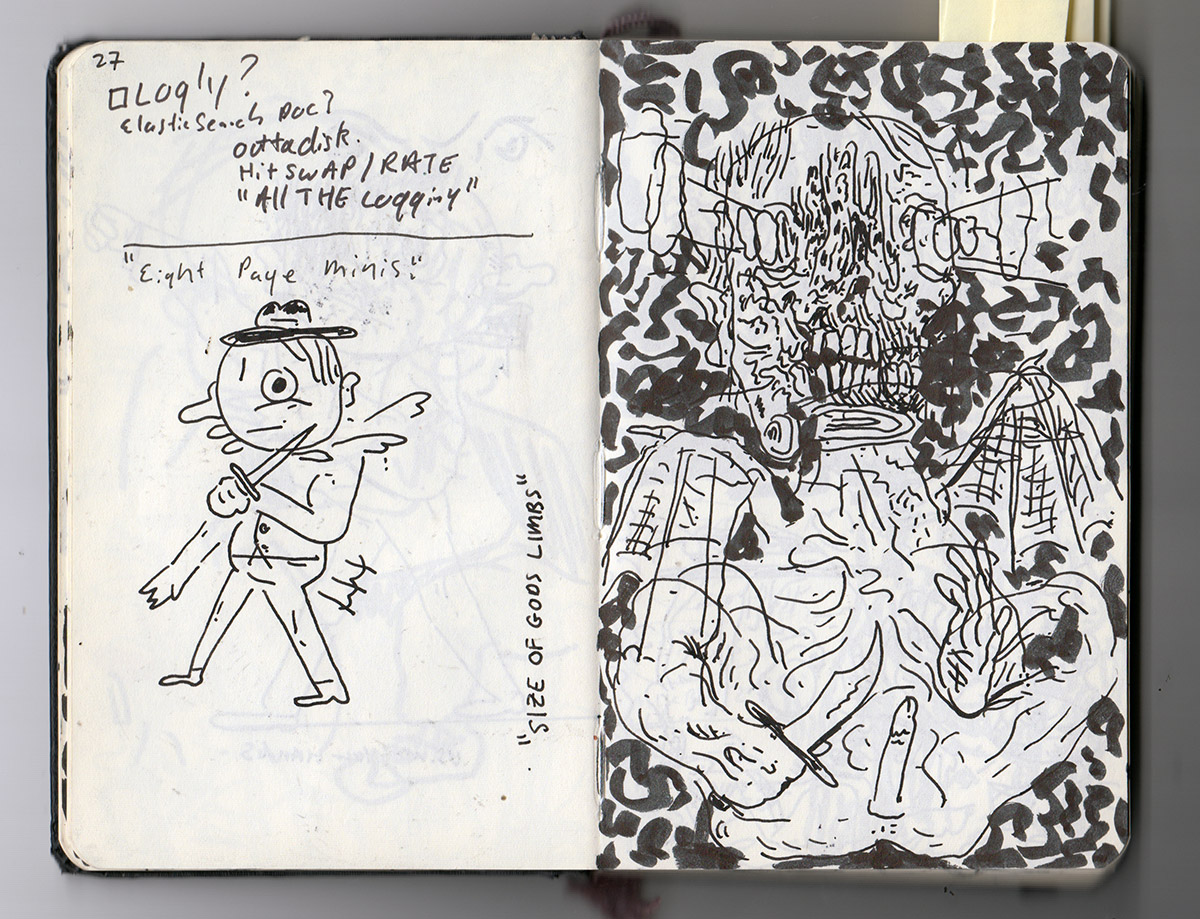 27
□ Loggly?
ElasticSearch Doc?
outta disk.
Hit SWAP/RATE
"All THE Logging"
"Eight Page Minis."
"SIZE OF GODS LIMBS"